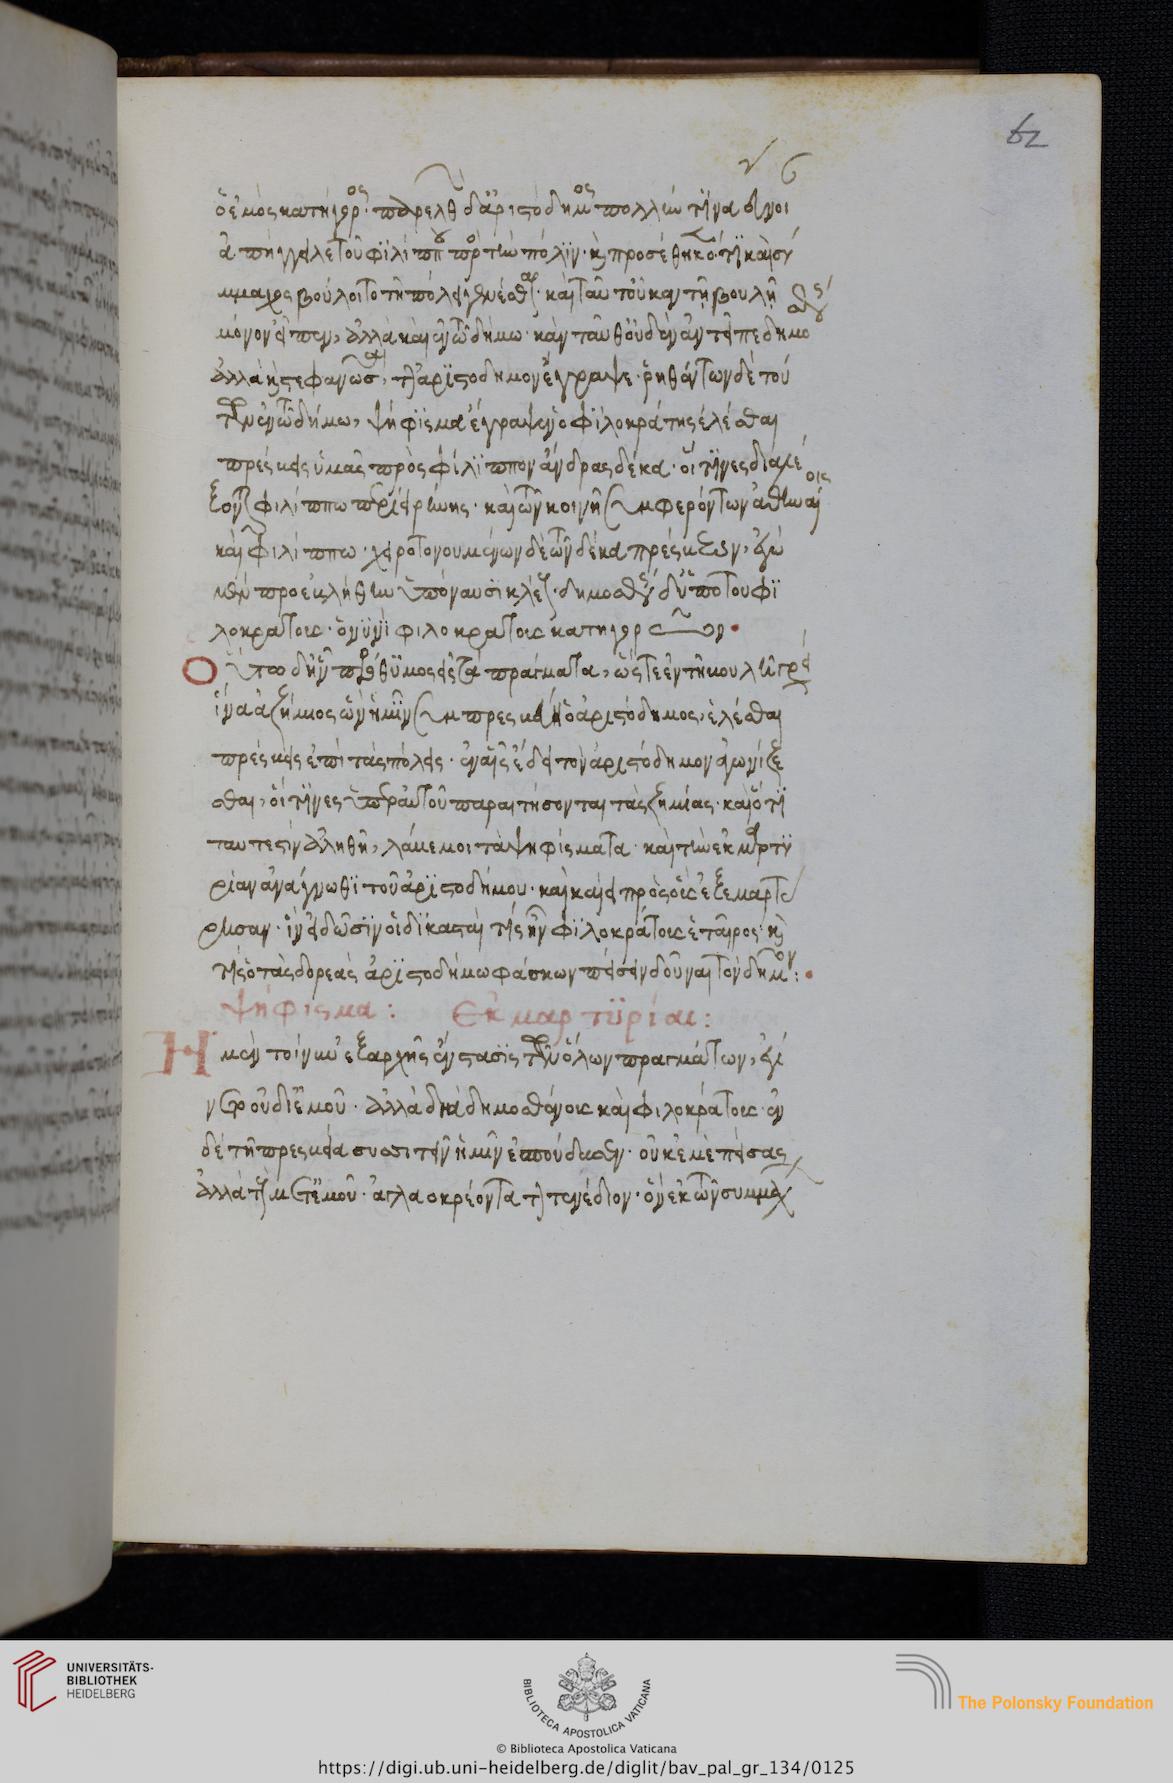 62
ὁ ἐμὸς κατήγορος· παρελθὼν δ' ἀριστόδημος πολλήν τινα εὔνοιαν
ἀπήγγελε τοῦ φιλίππου πρὸς τὴν πόλιν· καὶ προσέθηκεν ὅτι καὶ σύ
μμαχος βούλοιτο τῇ πόλει γενέσθαι· καὶ ταῦτ' οὐκ ἐν τῇ βουλῇ
μόνον εἶπεν, ἀλλὰ καὶ ἐν τῷ δήμῳ· κἀνταῦθ' οὐδὲν ἀντεῖπε δημο
ἀλλὰ καὶ στεφανῶσαι τὸν ἀριστόδημον ἔγραψε· ῥηθέντων δὲ τού
των ἐν τῷ δήμῳ, ψήφισμα ἔγραψεν ὁ φιλοκράτης ἑλέσθαι
πρέσβεις ὑμᾶς πρὸς φίλιππον ἄνδρας δέκα· οἵτινες διαλέ
ξονται φιλίππῳ περὶ εἰρήνης· καὶ τῶν κοινῇ συμφερόντων ἀθηναίοις
καὶ φιλίππῳ· χειροτονουμένων δὲ τῶν δέκα πρέσβεων, ἐγὼ
μὲν προεβλήθην ὑπὸ ναυσικλέους· δημοσθένης δ' ὑπὸ τοῦ φι
λοκράτους· ὁ νυνὶ φιλοκράτους κατηγορῶν
Οὕτω δ' ἦν πρόθυμος εἰς τὰ πράγματα, ὥστε ἐν τῇ βουλῇ γράφει
ἵνα ἀζήμιος ὢν ἡμῖν συμπρεσβεύῃ ὁ ἀριστόδημος, ἑλέσθαι
πρέσβεις ἐπὶ τὰς πόλεις· ἐν αἷς ἔδει τὸν ἀριστόδημον ἀγωνίζε
σθαι, οἵτινες ὑπὲρ αὐτοῦ παραιτήσονται τὰς ζημίας· καὶ ὅτι
ταῦτ' ἐστὶν ἀληθῆ, λάβε μοι τὰ ψηφίσματα· καὶ τὴν ἐκμαρτυ
ρίαν ἀνάγνωθι τοῦ ἀριστοδήμου· καὶ κάλει πρὸς οὓς ἐξεμαρτύ
ρησαν· ἵν' εἰδῶσιν οἱ δικασταὶ τίς ἦν φιλοκράτους ἑταῖρος· καὶ
τίς ὁ τὰς δωρεὰς ἀριστοδήμῳ φάσκων πείσειν δοῦναι τὸν δῆμον:
ψήφισμα: Ἐκμαρτυρίαι:
Ἡ μὲν τοίνυν ἐξ ἀρχῆς ἔνστασις τῶν ὅλων πραγμάτων, ἐγέ
νετο οὐ δι' ἐμοῦ· ἀλλὰ διὰ δημοσθένους καὶ φιλοκράτους· ἐν
δὲ τῇ πρεσβείᾳ συσσιτεῖν ἡμῖν ἐσπούδασεν· οὐκ ἐμὲ πείσας
ἀλλὰ τοὺς μετ' ἐμοῦ· ἀγλαοκρέοντα τὸν τενέδιον· ὃν ἐκ τῶν συμμάχ
UNIVERSITÄTS-
BIBLIOTHEK
HEIDELBERG
BIBLIOTECA APOSTOLICA VATICANA
The Polonsky Foundation
© Biblioteca Apostolica Vaticana
https://digi.ub.uni-heidelberg.de/diglit/bav_pal_gr_134/0125